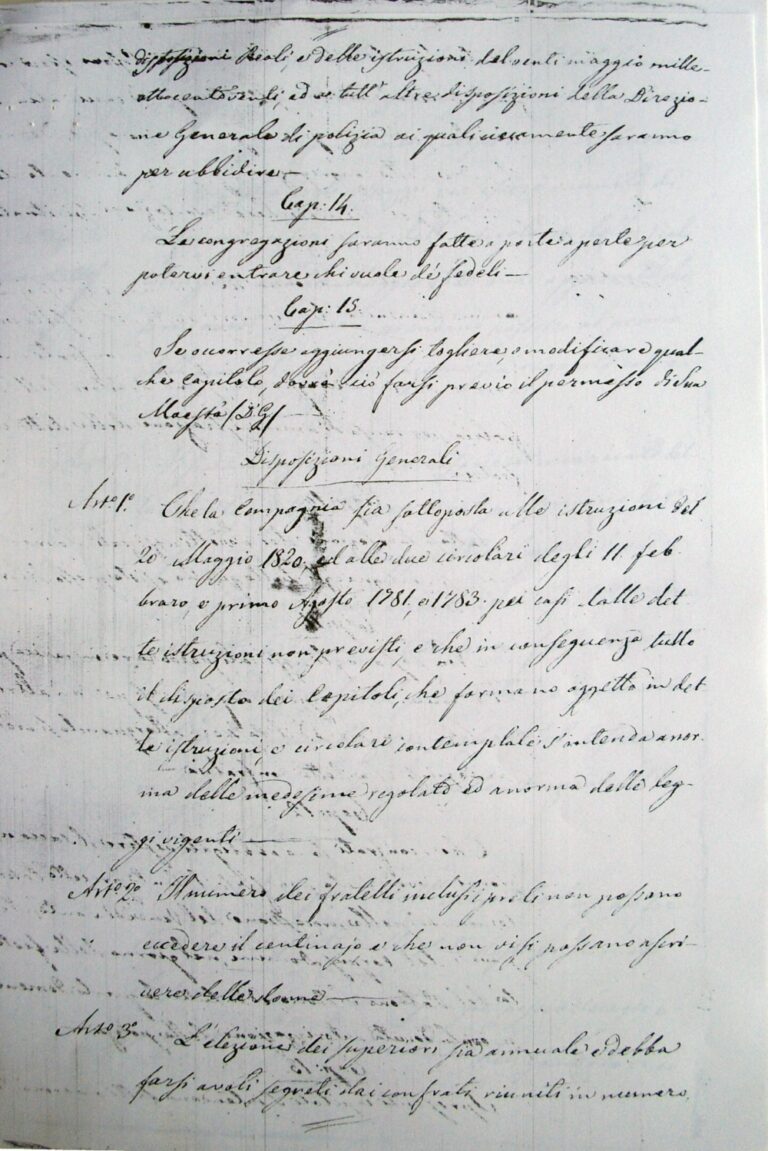 disposizioni Reali, e delle istruzioni del venti maggio mille-
ottocento venti, ed a tutt'altre disposizioni della Direzio-
ne Generale di polizia ai quali ciecamente saranno
per ubbidire —
Cap: 14.
Le congregazioni saranno fatte a porte aperte per
potervi entrare chi vuole de' fedeli —
Cap: 15
Se occorresse aggiungersi togliere, o modificare qual-
che capitolo, dovrà ciò farsi previo il permesso di Sua
Maestà /D.G/ —
Disposizioni Generali
Arto: 1º. Che la Compagnia sia sottoposta alle istruzioni del
20. Maggio 1820. ed alle due circolari degli 11 feb.
braro, e primo Agosto 1781, e 1783. pei casi dalle det
te istruzioni non previsti, e che in conseguenza tutto
il disposto dei Capitoli, che formano oggetto in det
te istruzioni, e circolari contemplate s'intenda a nor-
ma delle medesime regolato ed a norma delle leg-
gi vigenti —
Arto: 2º Il numero dei fratelli inclusi i preti non possano
eccedere il centinajo e che non visi possano ascri-
vere delle donne —
Arto: 3º L'elezione dei superiori sia annuale e debba
farsi a voti segreti dai confrati riuniti in numero